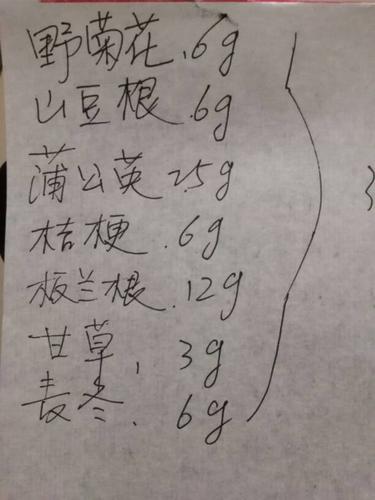 野菊花.6g
山豆根.6g
蒲公英25g
桔梗.6g
板兰根.12g
甘草, 3g
麦冬. 6g